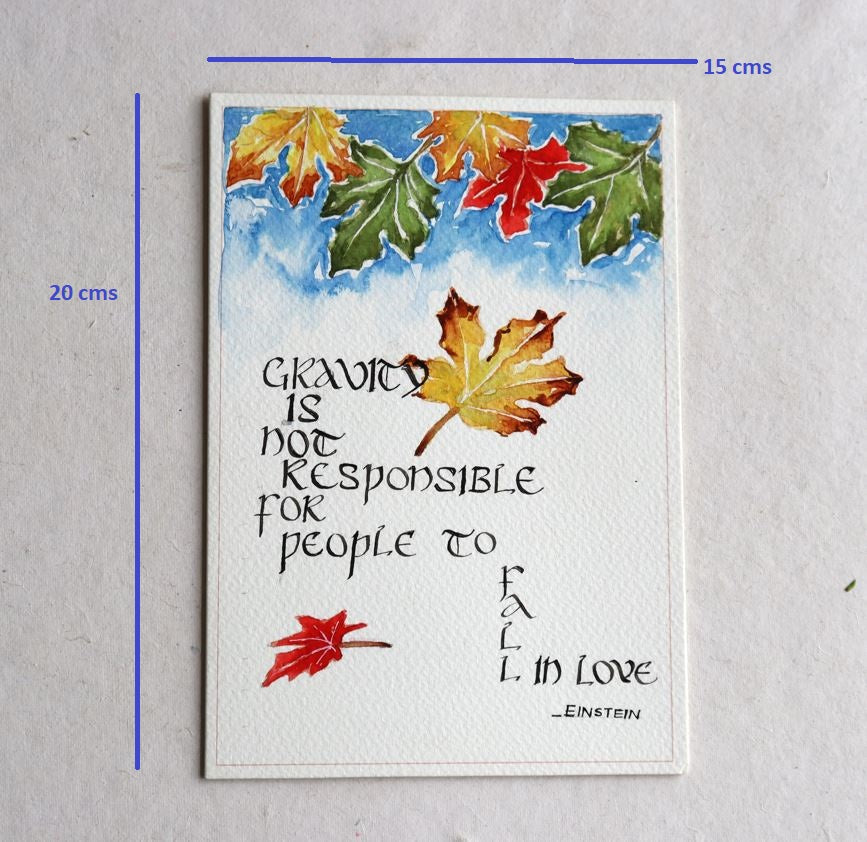 15 cms
20 cms
GRAVITY
IS
NOT
RESPONSIBLE
FOR
PEOPLE TO
F
A
L
L IN LOVE
_EINSTEIN